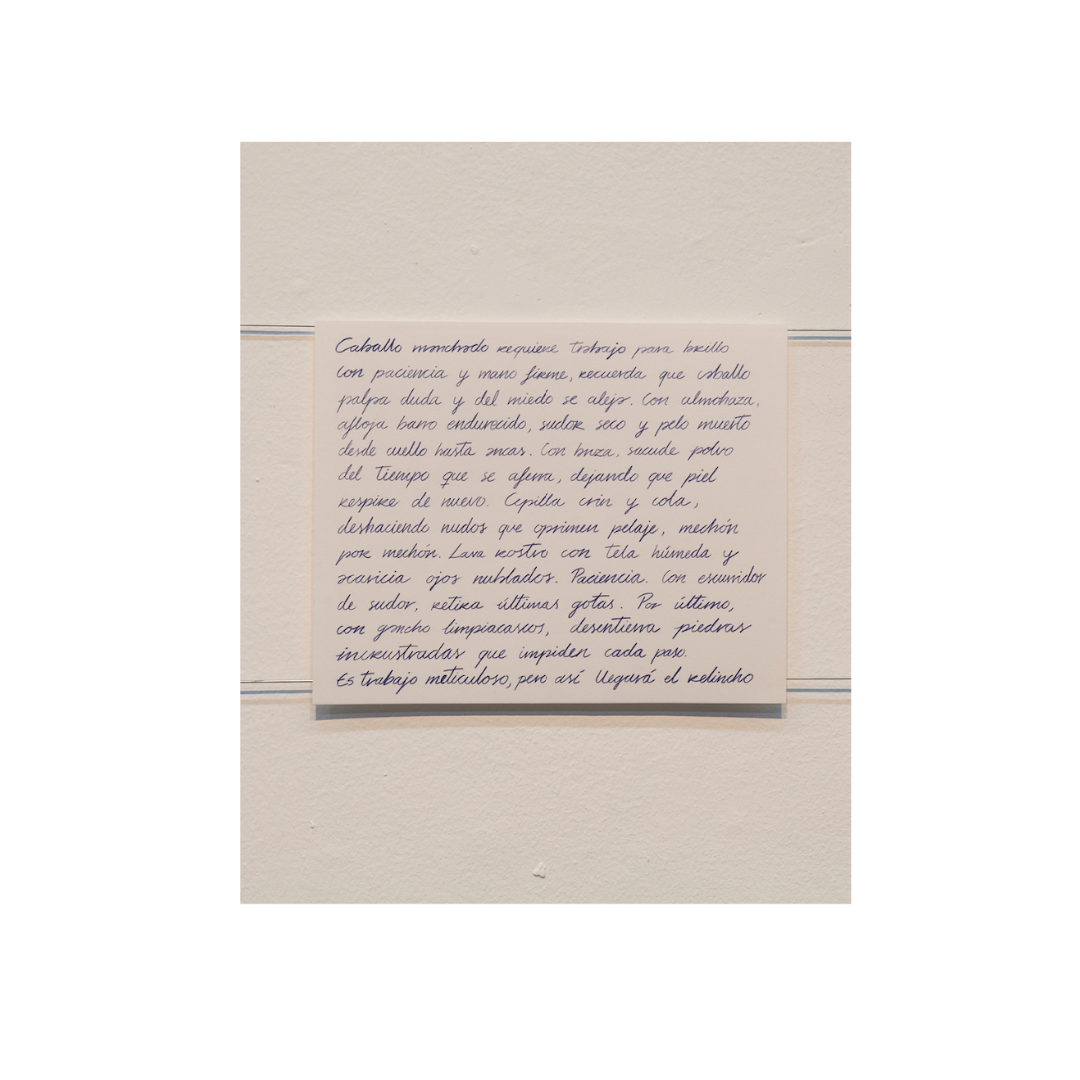 Caballo manchado requiere trabajo para brillo
con paciencia y mano firme, recuerda que caballo
palpa duda y del miedo se aleja. Con almohaza,
afloja barro endurecido, sudor seco y pelo muerto
desde cuello hasta ancas. Con bruza, sacude polvo
del tiempo que se aferra, dejando que piel
respire de nuevo. Cepilla crin y cola,
deshaciendo nudos que oprimen pelaje, mechón
por mechón. Lava rostro con tela húmeda y
acaricia ojos nublados. Paciencia. Con escurridor
de sudor, retira últimas gotas. Por último,
con gancho limpiacascos, desentierra piedras
incrustradas que impiden cada paso.
Es trabajo meticuloso, pero así llegará el relincho